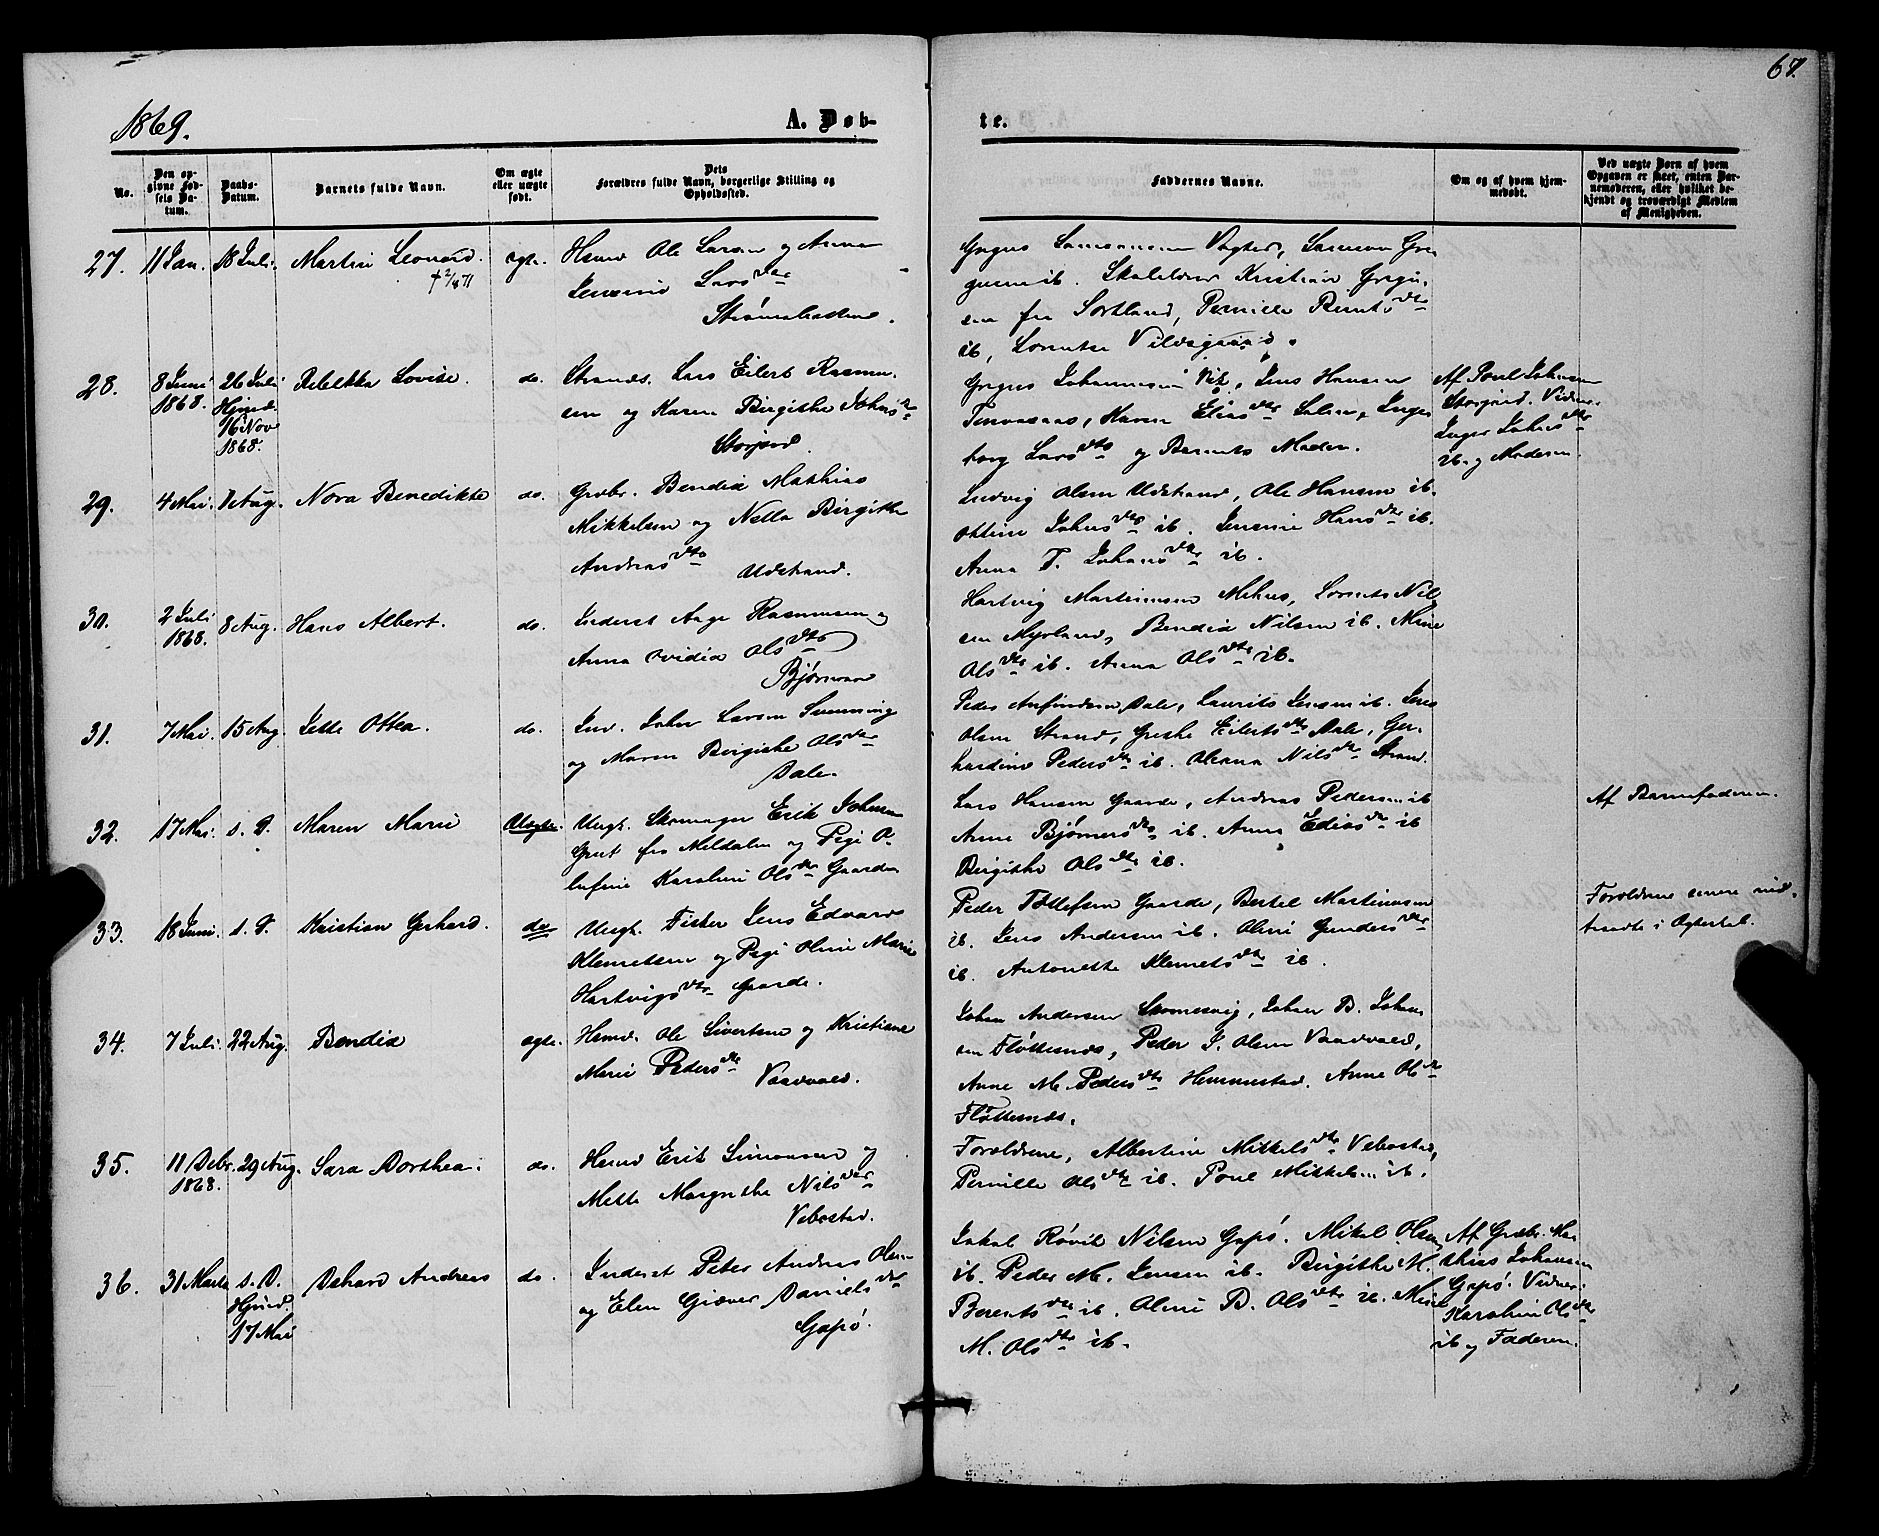 67.
1869.
A. Døb-
te.
No.
Den op-
givne Fød-
sels Da-
tum.
Daabs-
Datum.
Barnets fulde Navn.
Om ægte
eller uægte
født.
Dets
Forældres fulde Navn, borgerlige Stilling og
Opholdssted.
Faddernes Navne.
Om og af hvem hjem-
medøbt.
Ved uægte Børn af hvem
Opgaven er skeet, enten Bar-
nemoderen, eller hvilket be-
kjendt og troværdigt Medlem
af Menigheden.
27. 11 Jan. 18 Juli. Martin Leonard. ægte.
Hsmd Ole Larsen og Anna
Jensine Larsdtr
fra Sortland, Pernille Berntsdtr
ib,
28. 8 Juni 1868. 26 Juli Hjmd. 16 Nov 1868. Rebekka Lovise. do.
Strands. Lars Eilert Rasmus-
sen og Karen Birgithe Johns
Storjord
Gregus Johannesen Vik, Jens Hansen
Tennevaas, Karen Eliasdtr
borg Larsdtr og Barnets Moder.
Af Poul Johnsen
Storjord. Vidner.
Inger Johnsdtr
ib. og Moderen.
29. 4 Mai. 1 Aug. Nora Benedikte do.
Grdbr. Bendix Mathias
Mikkelsen og Nella Birgitte
Andreasdtr Udstrand.
Ludvig Olsen Udstrand, Ole Hansen ib.
Ottine Johnsdtr ib. Jensine Hansdtr ib.
Anna T. Johansdtr ib.
30. 2 Juli 1868. 8 Aug. Hans Albert. do.
Inderst Aage Rasmussen og
Anna Ovidia Olsdtr
Hartvig Martinussen Mehus, Lorents Nil-
sen Myrland, Bendix Nilsen ib. Mine
Olsdtr ib. Anna Olsdtr ib.
31. 7 Mai. 15 Aug. Jette Ottea. do.
Ind. John Larsen
og Maren Birgithe Olsdtr
Dale.
Peder Anfindsen Dale, Laurits Jensen ib. Jens
Olsen Strand, Grethe Eilertsdtr Dale, Ger-
hardine Pedersdtr ib. Oleana Nilsdtr Strand.
32. 17 Mai. s. D. Maren Marie Uægte.
Ungk. Skomager Erik Johnsen
fra Meldalen og Pige O-
lufine Karoline Olsdtr Gaarden
Lars Hansen Gaarde, Andreas Pedersen ib
Anne Bjørnersdtr ib. Anna Ediasdtr ib
Birgithe Olsdtr ib.
Af Barnefaderen.
33. 18 Juni. s. D. Kristian Gerhard. do
Ungk. Fisker Jens Edvard
Klemetsen og Pige Oline Marie
Hartvigsdtr Gaarde.
Peder Tollefsen Gaarde, Bertel Martinussen
ib. Jens Andersen ib. Oline Gundersdtr
ib. Antonette Klemetsdtr ib.
Forældrene senere ind-
traadte i Ægteskab.
34. 7 Juli. 22 Aug. Bendix ægte.
Hsmd. Ole Sivertsen og Kristiane
Marie Pedersdtr
Johan Andersen Skomesvig, Johan B. Johan-
sen Fløttenæs, Peder J. Olsen
Anne M. Pedersdtr Hemmestad. Anne Olsdtr
Fløttenæs.
35. 11 Debr. 1868. 29 Aug. Sara Dorthea. do.
Hsmd Erik Simonsen og
Mette Margrethe Nilsdtr
Vebostad.
Forældrene, Albertine Mikkelsdtr Vebostad,
Pernille Olsdtr ib. Poul Mikkelsen ib.
36. 31 Marts s. D. Hjmd. 17 Mai Andreas do.
Inderst Peter Andreas Olsen
og Elen Giæver Danielsdtr
Gapø.
Jakob Røvik Nilsen Gapø. Mikal Olsen
ib. Peder M. Jensen ib. Birgithe M.
Berentsdtr ib. Oline B. Olsdtr ib. Mine
M. Olsdtr ib.
Af Grdbr. Ma-
thias Johansen
Gapø. Vidner.
Karoline Olsdtr
ib og Faderen.